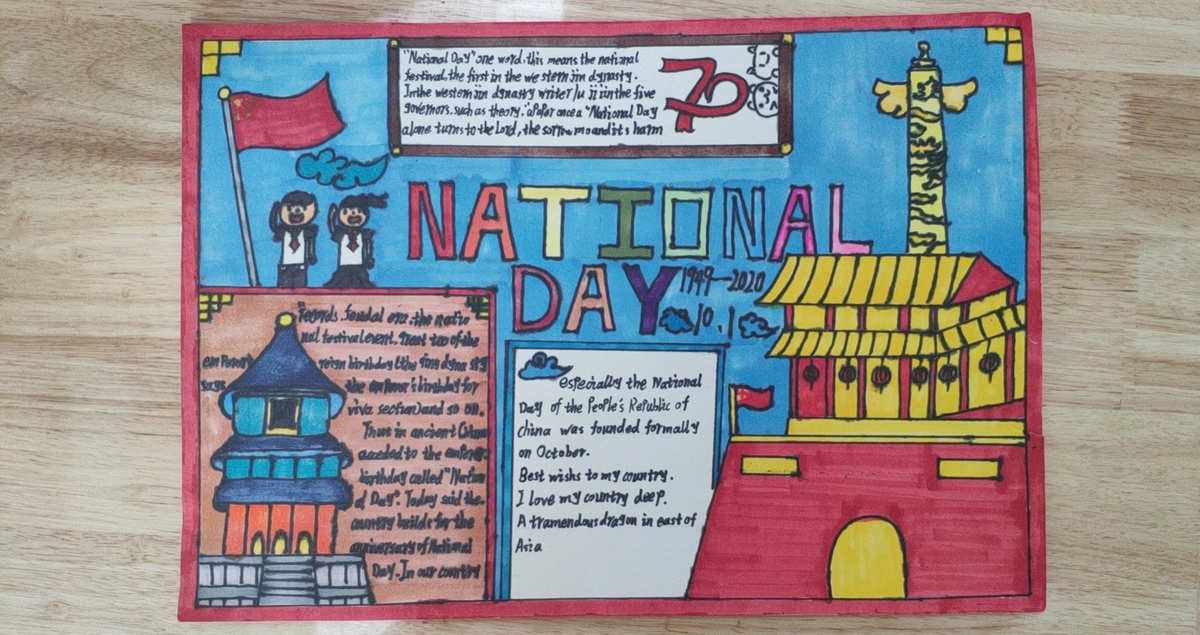 "National Day" one word, this means the national
festival, the first in the western jin dynasty.
In the western jin dynasty writer lu ji in the five
governors, such as theory,
once a "National Day
alone turns to the Lord, the sorrow mo and it's harm
70
NATIONAL
DAY
1949—2020
10.1
Regards, feudal era, the natio
nal festival event, great too of the
reign birthday (the qing dyna sty
the emperor's birthday for
viva section) and so on.
Thus in ancient China
acceded to the emperor
birthday called "Nation
al Day". Today said the
country builds for the
anniversary of National
Day. In our country
especially the National
Day of the People's Republic of
China was founded formally
on October.
Best wishes to my country.
I love my country deep.
A tramendous dragon in east of
Asia